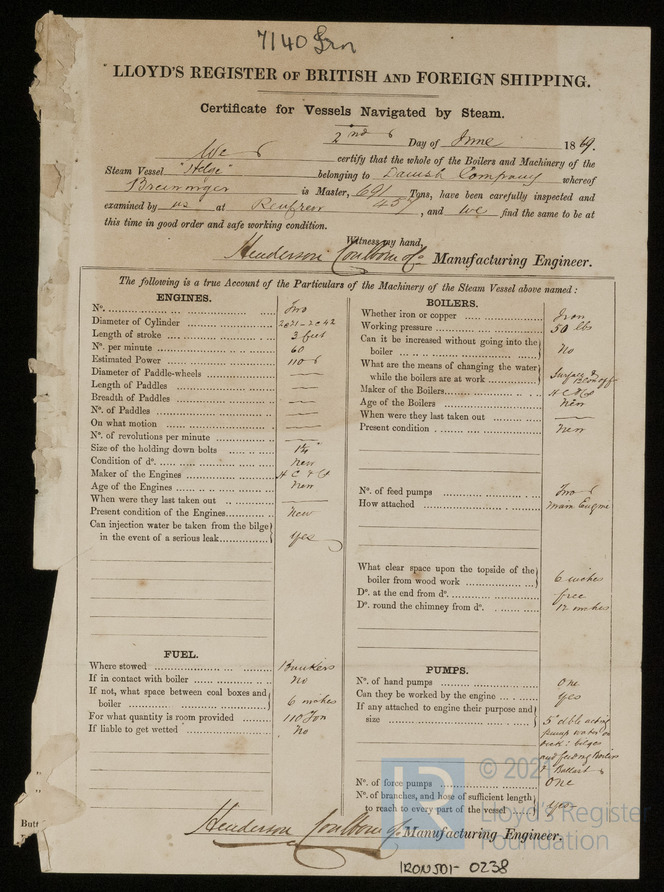 7140 Irn
LLOYD'S REGISTER OF BRITISH AND FOREIGN SHIPPING.
Certificate for Vessels Navigated by Steam.
2nd Day of June 1869.
We certify that the whole of the Boilers and Machinery of the
Steam Vessel "Helge" belonging to Danish Company whereof
Breininger is Master, 691 Tons, have been carefully inspected and
examined by us at Renfrew 457, and We find the same to be at
this time in good order and safe working condition.
Witness my hand,
Henderson Coulborn & Co Manufacturing Engineer.
The following is a true Account of the Particulars of the Machinery of the Steam Vessel above named:
ENGINES.
No. Two
Diameter of Cylinder
Length of stroke 3 feet
No. per minute 60
Estimated Power 110
Diameter of Paddle-wheels
Length of Paddles
Breadth of Paddles
No. of Paddles
On what motion
No. of revolutions per minute
Size of the holding down bolts 1¼
Condition of do. New
Maker of the Engines H C & Co
Age of the Engines New
When were they last taken out
Present condition of the Engines New
Can injection water be taken from the bilge
in the event of a serious leak yes
FUEL.
Where stowed Bunkers
If in contact with boiler No
If not, what space between coal boxes and
boiler 6 inches
For what quantity is room provided 110 Ton
If liable to get wetted No
BOILERS.
Whether iron or copper Iron
Working pressure 50 lbs
Can it be increased without going into the
boiler No
What are the means of changing the water
while the boilers are at work Surface & Blow off
Maker of the Boilers H C & Co
Age of the Boilers New
When were they last taken out
Present condition New
No. of feed pumps Two
How attached Main Engine
What clear space upon the topside of the
boiler from wood work 6 inches
Do. at the end from do. free
Do. round the chimney from do. 12 inches
PUMPS.
No. of hand pumps One
Can they be worked by the engine yes
If any attached to engine their purpose and
size 5" dble acting
pump water on
deck: bilges
and feeding Boilers
& Ballast
No. of force pumps One
No. of branches, and hose of sufficient length
to reach to every part of the vessel yes
Henderson Coulborn & Co Manufacturing Engineer.
Butt
IRON501-0238
LR
© 2021
Lloyd's Register
Foundation